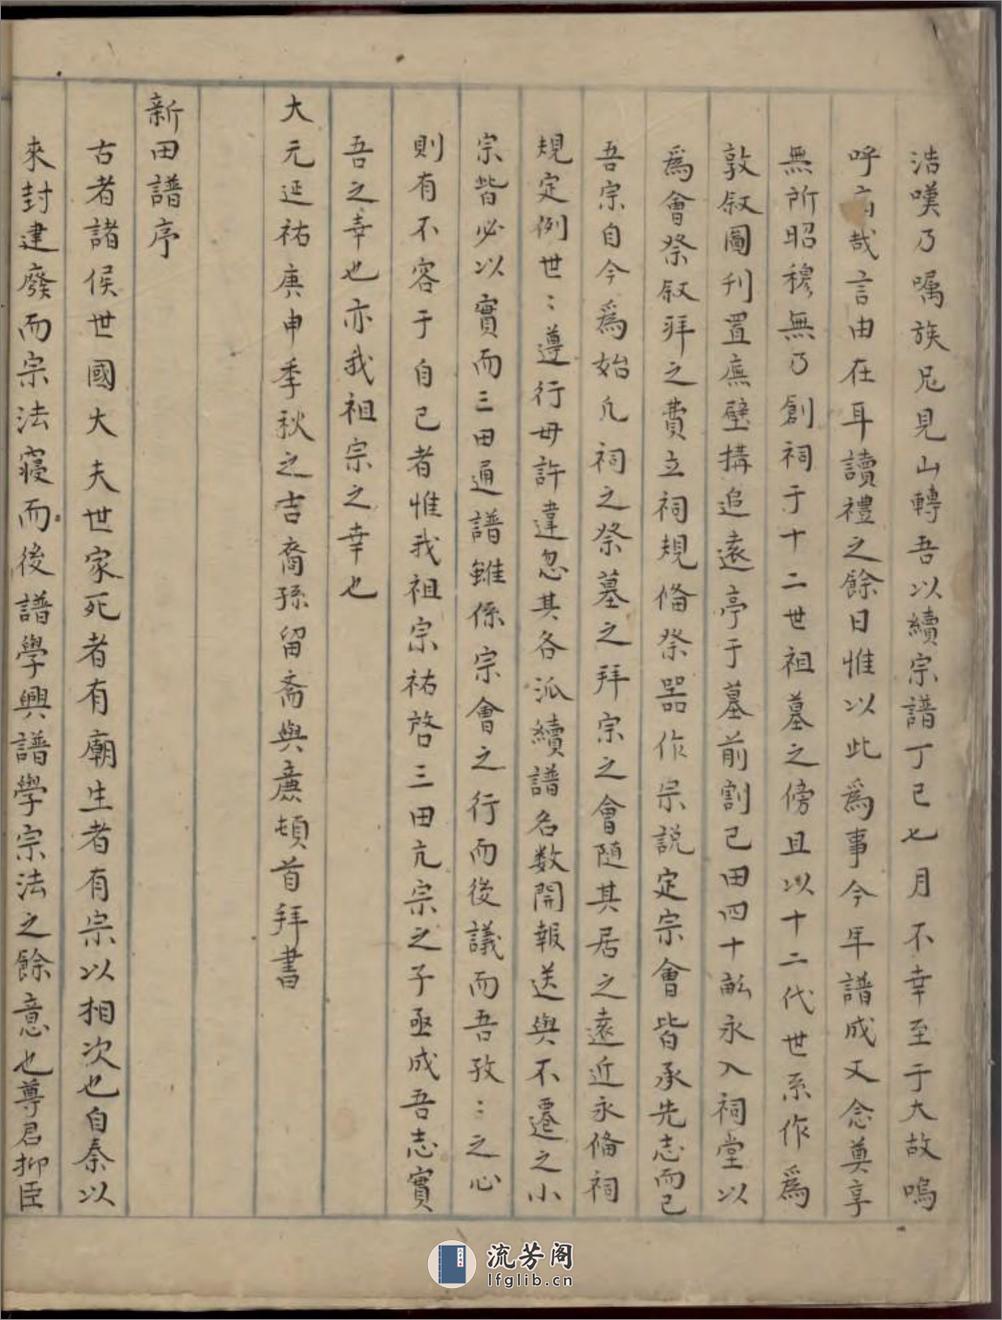 浩嘆乃嘱族兄見山轉吾以續宗譜丁巳七月不幸至于大故嗚
呼哉言由在耳讀禮之餘日惟以此爲事今年譜成又念奠享
無所昭穆無乃創祠于十二世祖墓之傍且以十二代世系作爲
敦叙圖刊置廡壁搆追遠亭于墓前割己田四十畝永入祠堂以
爲會祭叙拜之費立祠規俻祭器作宗説定宗會皆承先志而已
吾宗自今爲始凢祠之祭墓之拜宗之會随其居之遠近永俻祠
規定例世:遵行毋許違忽其各派續譜名数開報送與不遷之小
宗皆必以實而三田通譜雖係宗會之行而後議而吾孜:之心
則有不容于自已者惟我祖宗祐啓三田亢宗之子亟成吾志實
吾之幸也亦我祖宗之幸也
大元延祐庚申季秋之吉裔孫留斋與廌頓首拜書
新田譜序
古者諸侯世國大夫世家死者有廟生者有宗以相次也自秦以
來封建廢而宗法寝而後譜學興譜學宗法之餘意也尊君抑臣
流芳阁
lfglib.cn